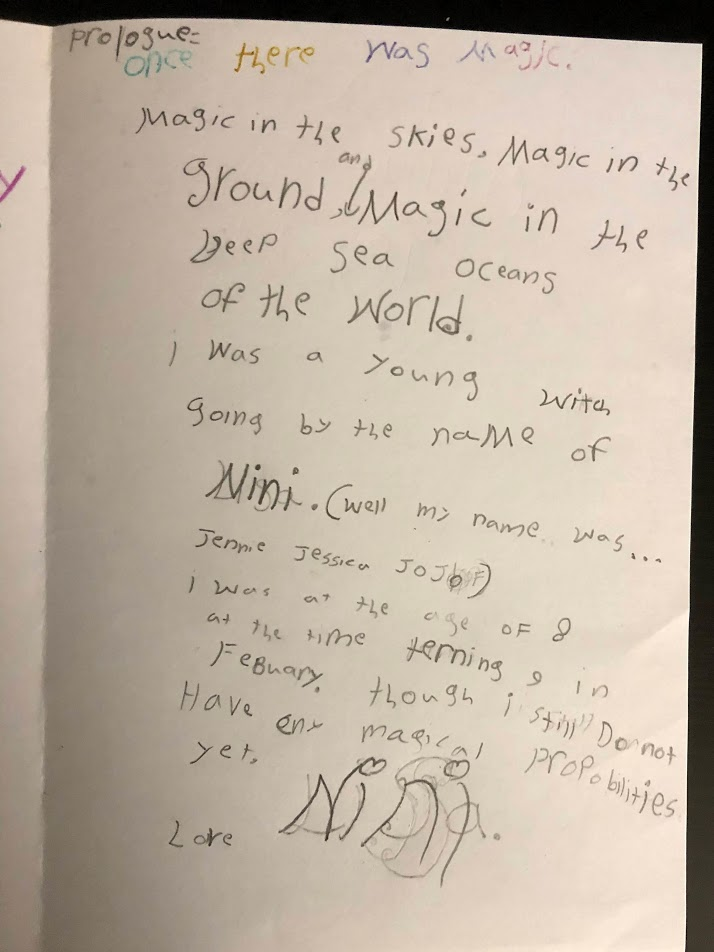 prologue=
once there was Magic.
Magic in the skies. Magic in the
ground, and Magic in the
Deep sea oceans
of the World.
i was a young witch
going by the naMe of
Nini. (well my name was...
Jennie Jessica JoJo)
i was at the age of 8
at the time terning 9 in
FeBuary. though i still Do not
Have eny magical propobilities
yet.
Love Nini.